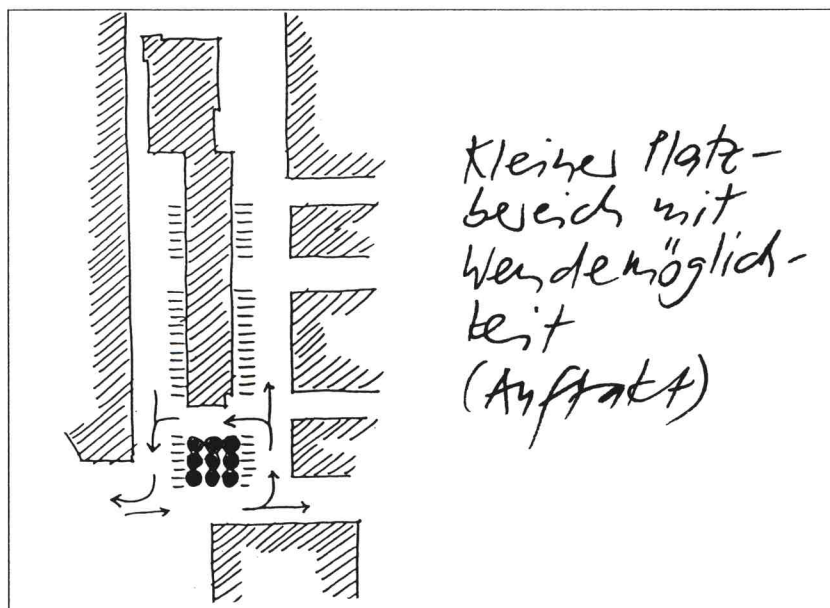 Kleiner Platz-
bereich mit
Wendemöglich-
keit
(Auftakt)